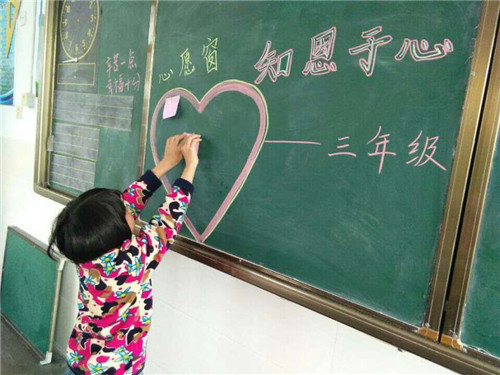 心愿窗
知恩于心
——三年级